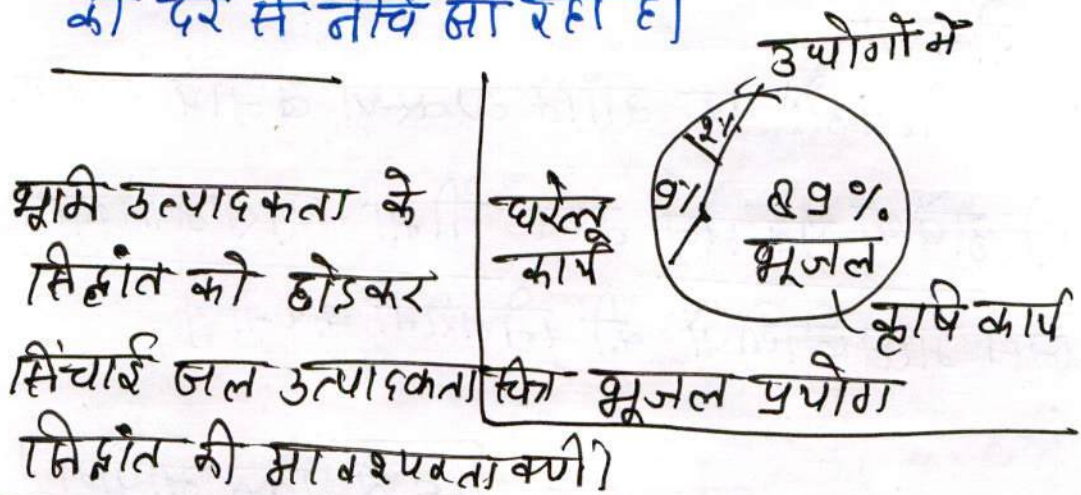 की दर से नीचे जा रहा है।
भूमि उत्पादकता के
सिद्धांत को छोड़कर
सिंचाई जल उत्पादकता
सिद्धांत की आवश्यकता क्यों?
उद्योगों में
2%
9%
89%
भूजल
घरेलू
कार्य
कृषि कार्य
चित्र भूजल प्रयोग